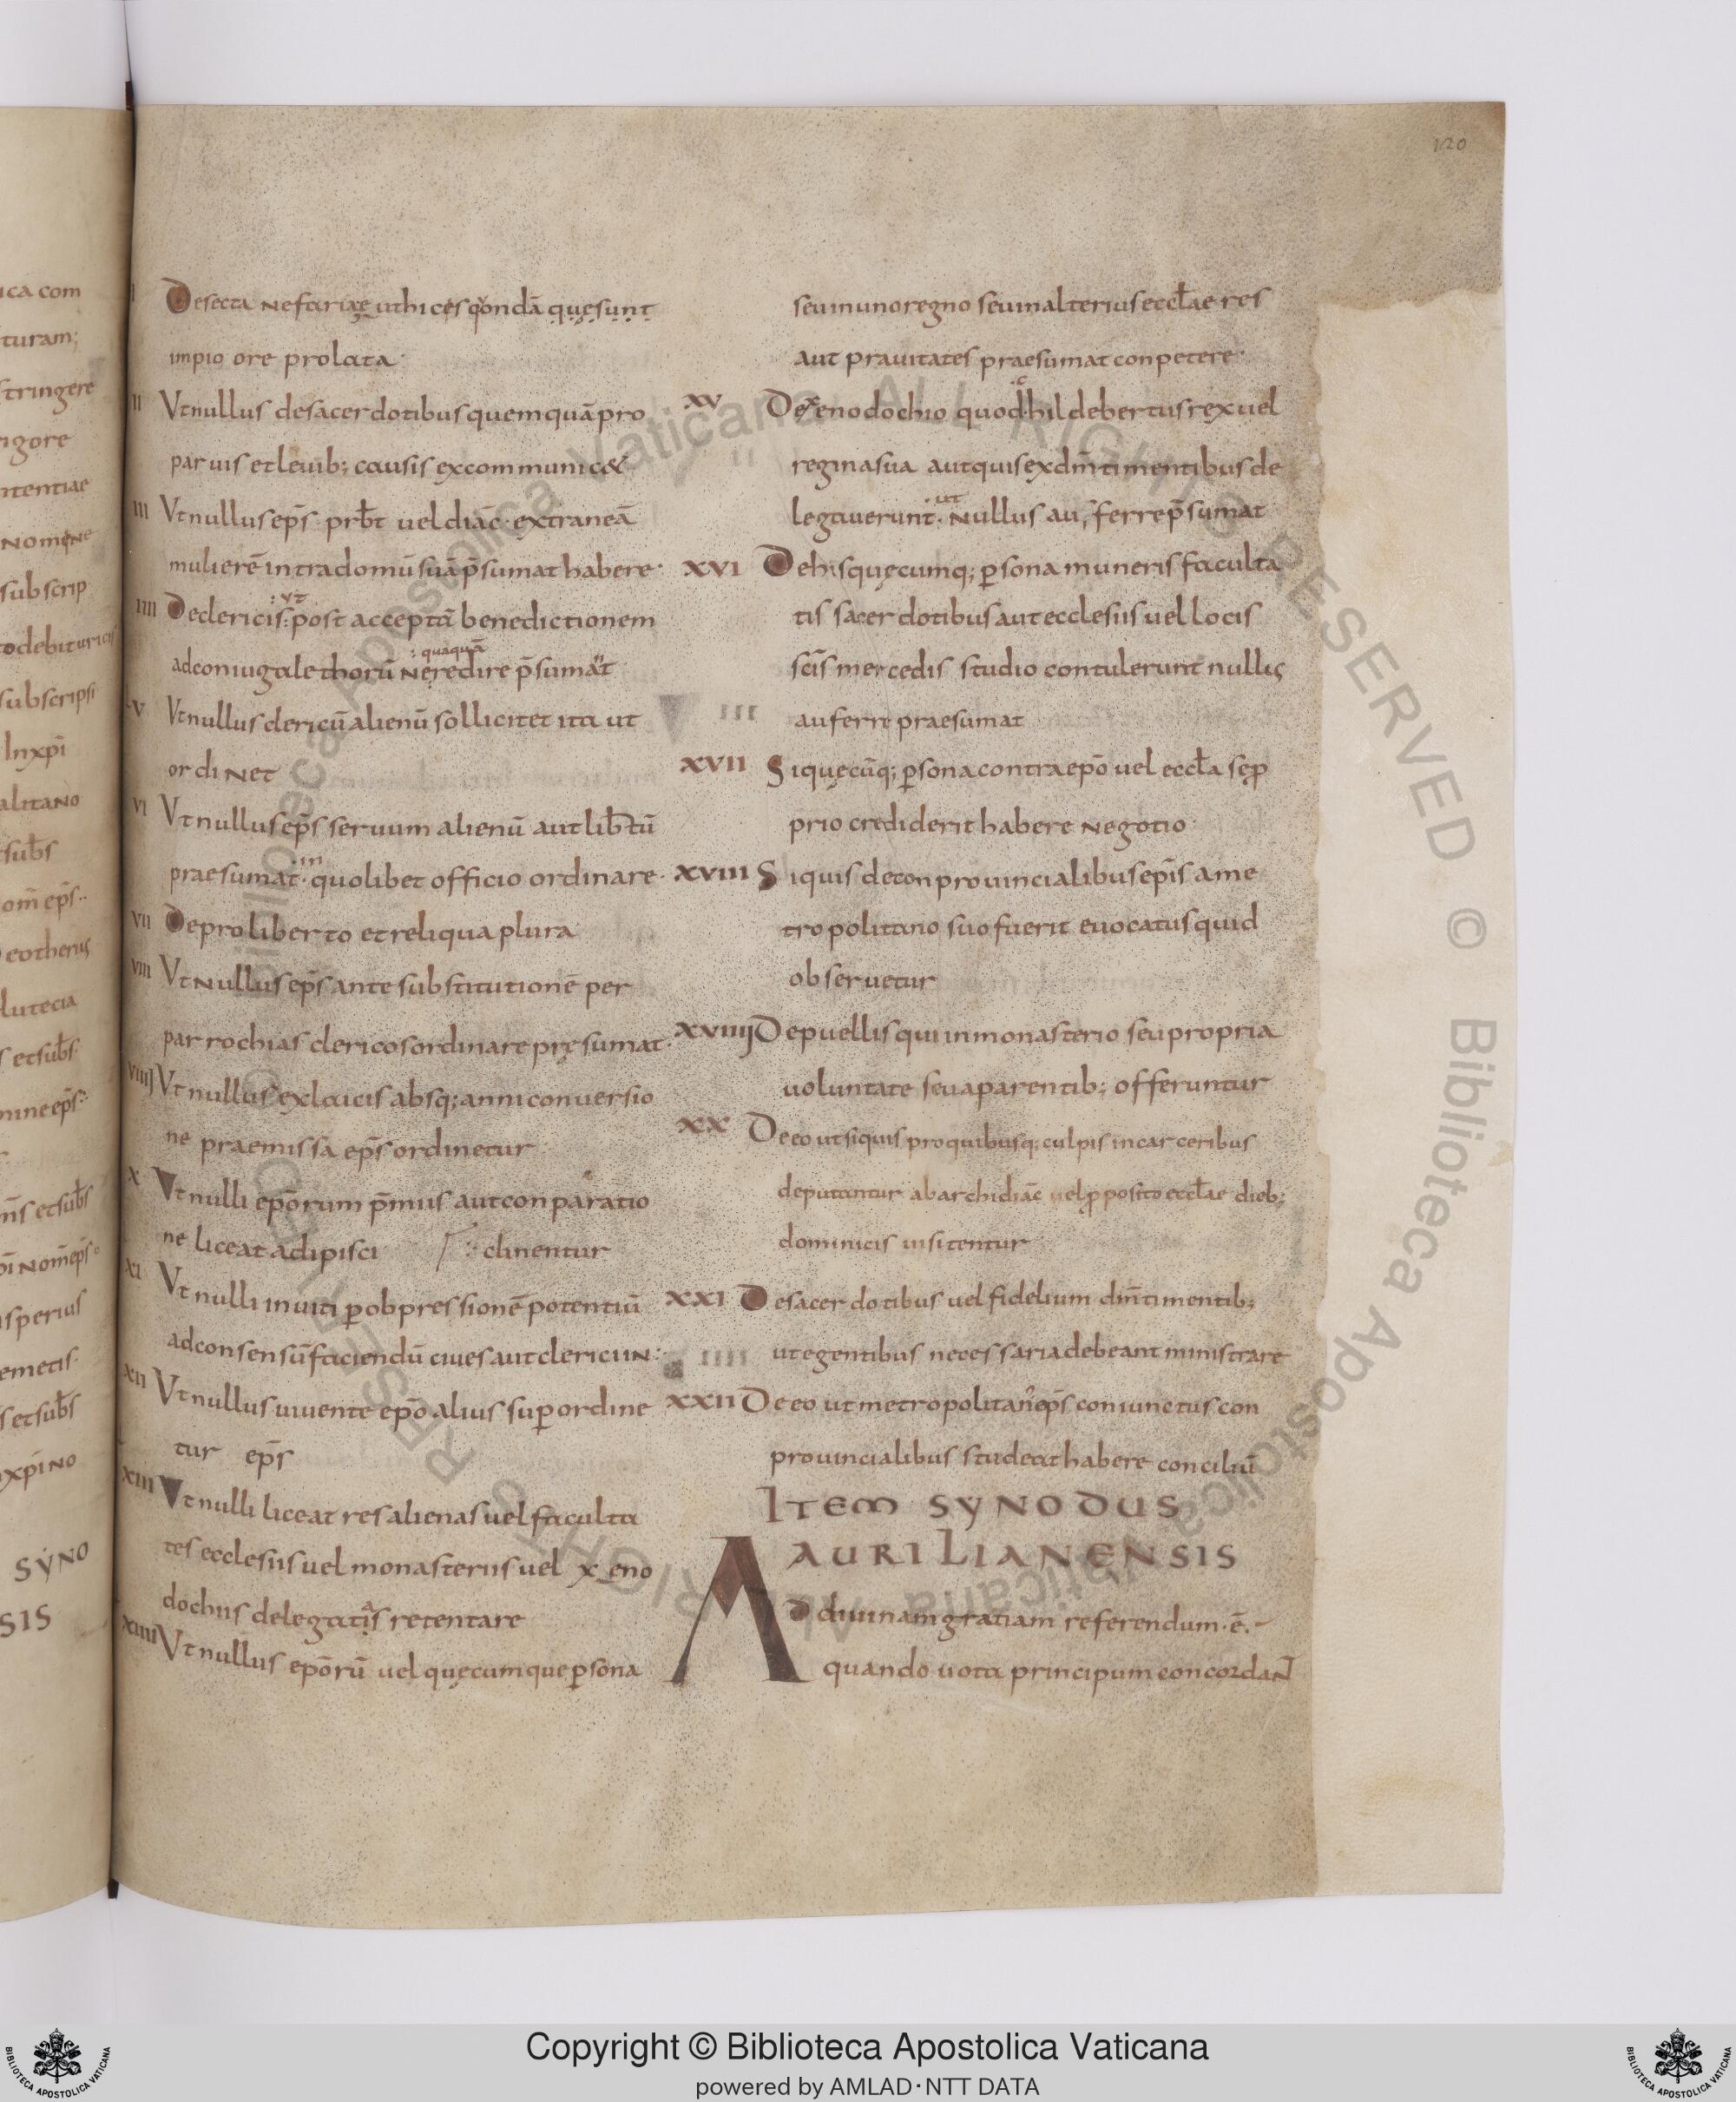 120
ica com
turam;
stringere
rigore
ntentiae
subscrip
subscripsi
Inxpī
alitano
eotherus
lutecia
sperius
SYNO
SIS
I Desecta nefariae uthices qͦondā quęsunt
impio ore prolata·
II Vtnullus desacerdotibus quemquā pro
paruis etleuib; causis excommunic&
III Vtnullus ep̄s· prb̄t ueldiac̄· extraneā
mulierē intradomū suā p̄sumat habere·
IIII Declericis: :vt post acceptā benedictionem
adconiugale thorū neredire :quaquā p̄sumat
V Vtnullus clericū alienū sollicitet ita ut
ordinet
VI Vtnullus ep̄s seruum alienū aut lib̄tū
praesumat· ·in quolibet officio ordinare·
VII Deproliberto etreliqua plura
VIII Vtnullus ep̄s ante substitutionē per
parrochias clericos ordinare pręsumat·
VIIII Vtnullus exlaicis absq; anni conuersio
ne praemissa ep̄s ordinetur
X Vtnulli epōrum p̄mus autconparatio
ne liceat adipisci clinentur
XI Vtnulli inuiti ꝑobpressionē potentiū
adconsensū faciendū ciues autclericiIN:
XII Vtnullus uiuente epō alius suꝑordine
tur ep̄s
XIII Vtnulli liceat res alienas uel faculta
tes ecclesiis uel monasteriis uel xeno
dochiis delegatas retentare
XIIII Vtnullus epōrū uel quęcumque ꝑsona
seuinunoregno seuinalterius eccl̄ae res
aut prauitates praesumat conpetere·
XV Dexenodochio quod·hildebertus rex uel
reginasua autquisexdn̄m timentibus de
legauerunt· ·ut nullus auferre p̄sumat
XVI Dehis quęcumq; ꝑsona muneris faculta
tis sacerdotibus aut ecclesiis uel locis
sc̄is mercedis studio contulerunt nullis
auferre praesumat
XVII Siquęcūq; ꝑsona contra epō uel eccl̄a sęꝓ
prio crediderit habere negotio·
XVIII Siquis deconprouincialibus ep̄is ame
tropolitano suo fuerit euocatus quid
obseruetur
XVIIII Depuellis qui inmonasterio seu propria
uoluntate seuaparentib; offeruntur
XX Deeo utsiquis proquibusq; culpis incarceribus
deputantur abarchidiac̄ uelꝓposito eccl̄ae dieb;
dominicis uisitentur
XXI Desacerdotibus uel fidelium dn̄m timentib;
utegentibus necessaria debeant ministrare
XXII Deeo ut metropolitan' ep̄s coniunctus con
prouincialibus studeat habere conciliū
ITEM SYNODUS
AURILIANENSIS
AD diuinam gratiam referendum·ē·
quando uota principum concordant
Copyright © Biblioteca Apostolica Vaticana
powered by AMLAD·NTT DATA